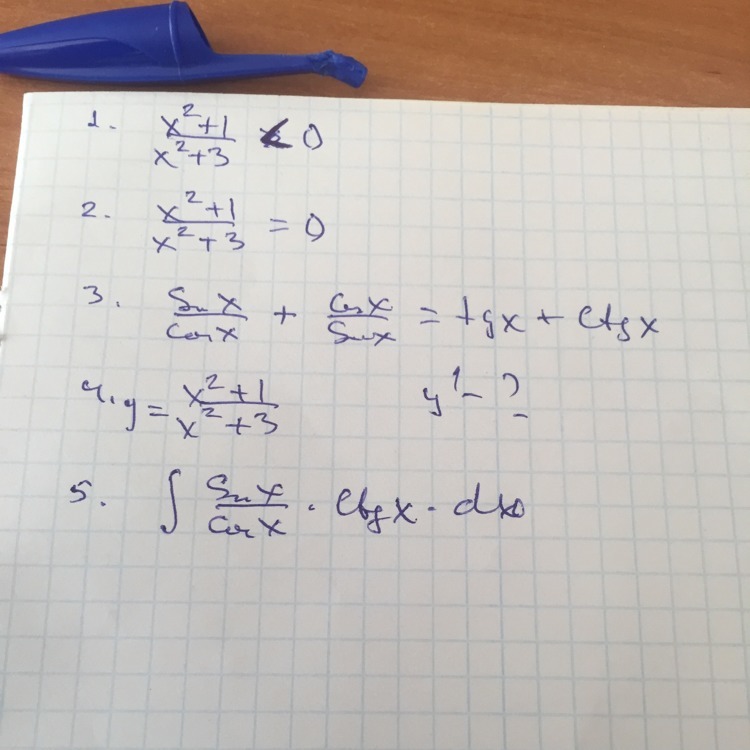 1. (x²+1)/(x²+3) < 0
2. (x²+1)/(x²+3) = 0
3. Sin x/Cos x + Cos x/Sin x = tg x + Ctg x
4. y = (x²+1)/(x²+3) y' - ?
5. ∫ Sin x/Cos x · Ctg x · dx